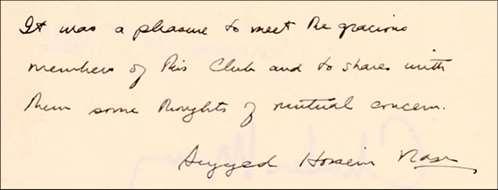 It was a pleasure to meet the gracious
members of this Club and to shares with
them some thoughts of mutual concern.
Seyyed Hossein Nasr